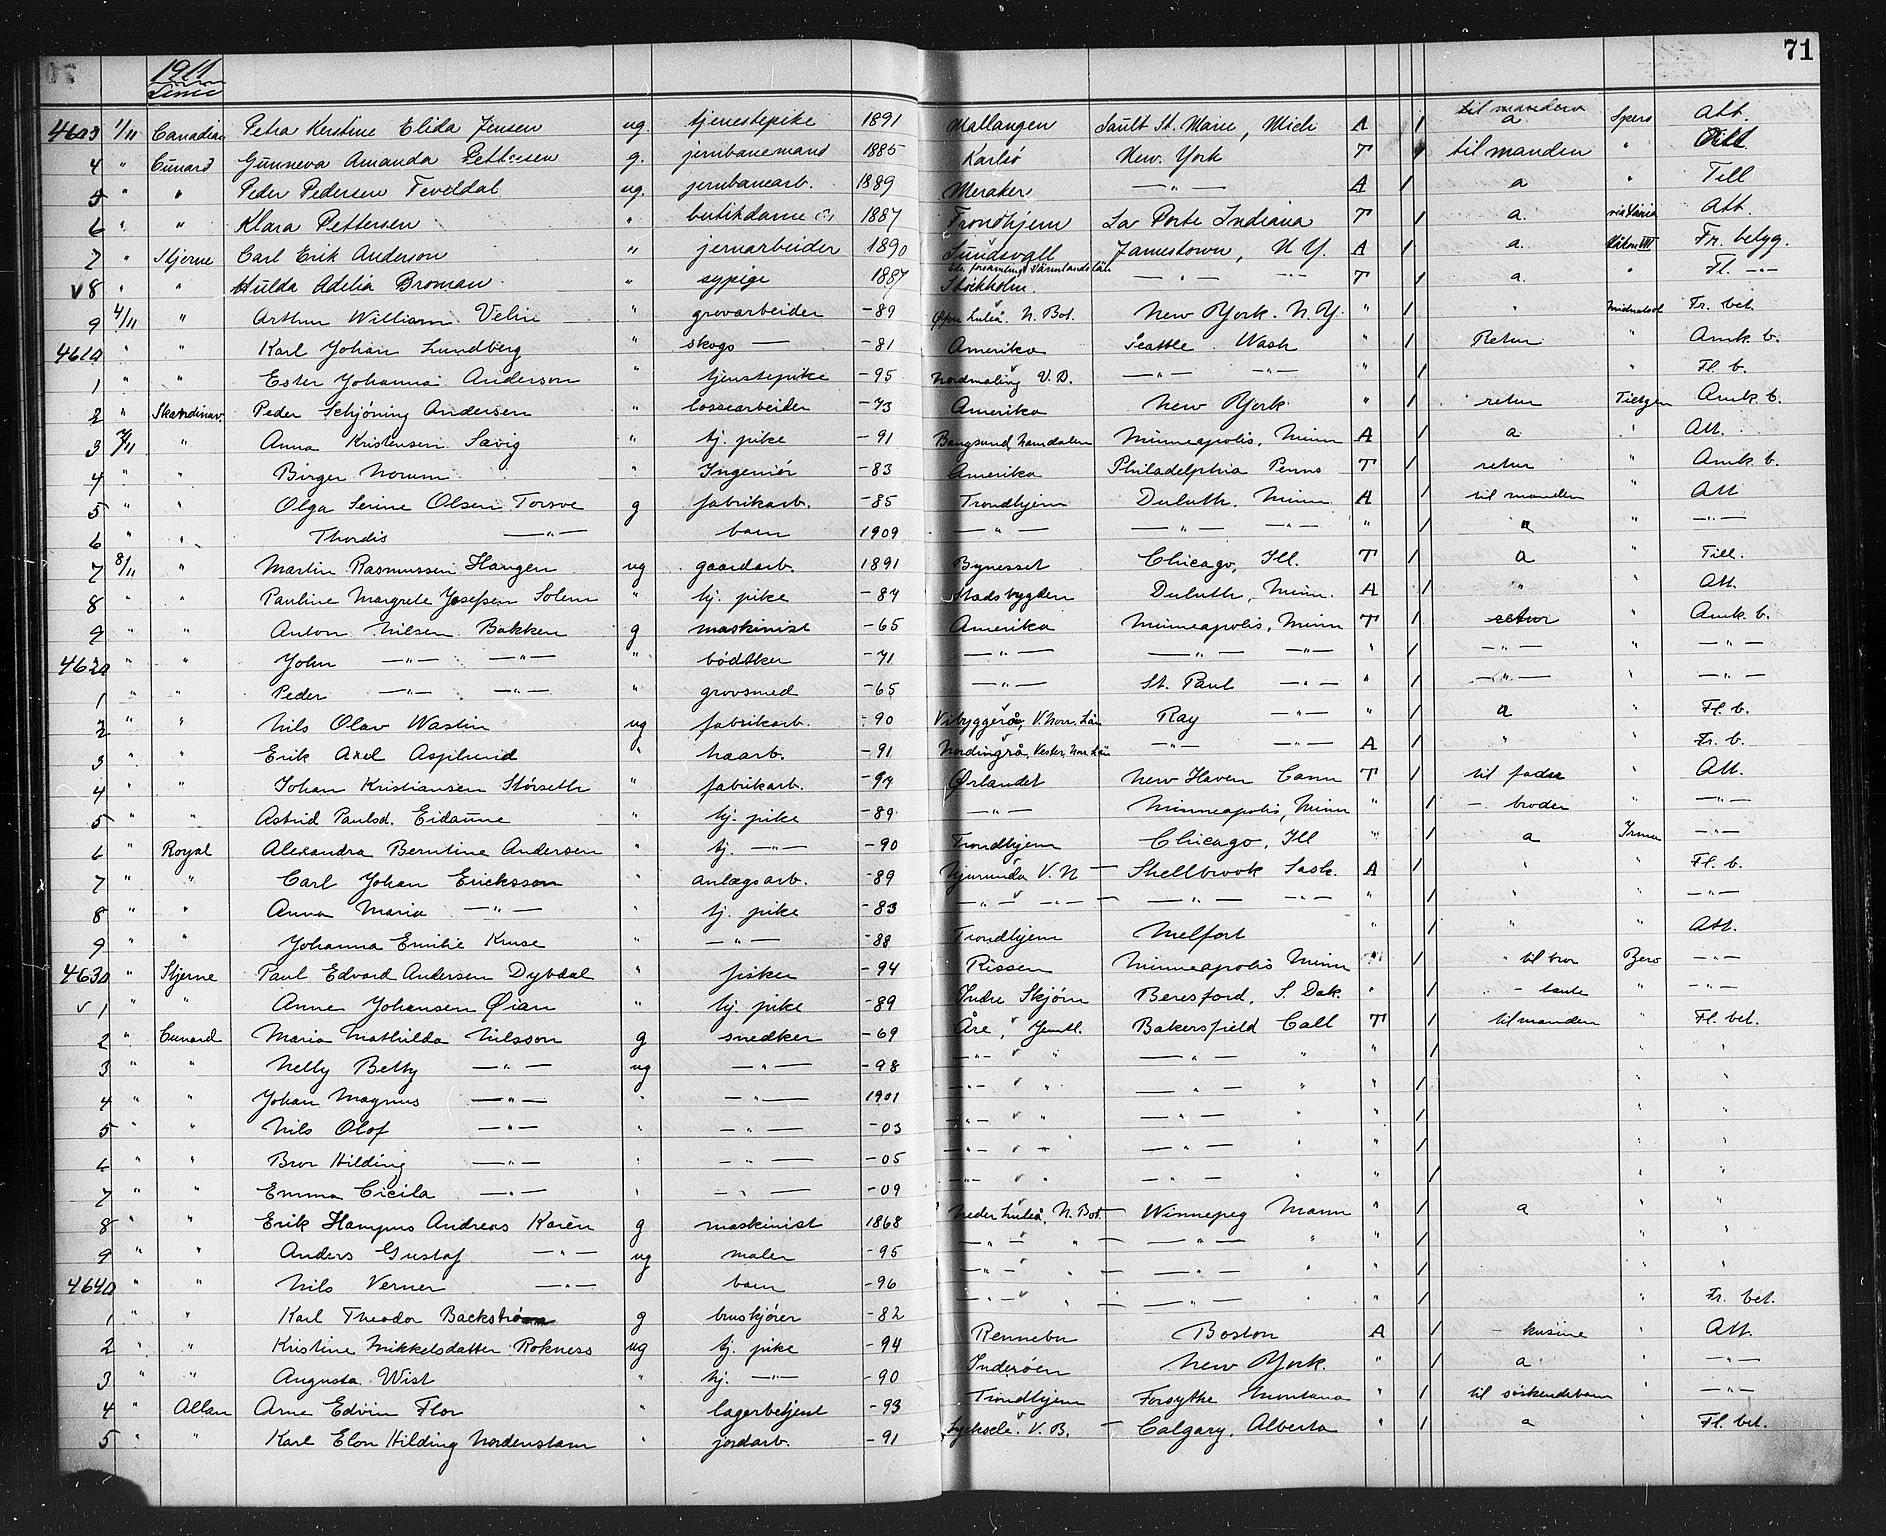 71
1911
Linie
4603 1/11 Canadian Petra Kerstine Elida Jensen ug. tjenestepike 1891 Mallangen Sault St. Marie, Mich A / til manden a Spero Att.
4 " Cunard Gunneva Amanda Pettersen g. jernbanemand 1885 Karlsø New York T til manden " Till
5 " " Peder Pedersen Teveldal ug. jernbanearb. 1889 Meraker —"— A / a " Till
6 " " Klara Pettersen " butikdame 1887 Trondhjem La Porte Indiana T / a via Vania Att.
7 " Stjerne Carl Erik Anderson " jernarbeider 1890 Sundsvall Jamestown, N. Y. A / a Håkon VII Fr. betyg.
v 8 " " Hulda Adelia Broman " sypige 1887 Eds församling Värmlands län Stockholm —"— —"— T / a " Fl. —"—
9 4/11 " Arthur William Velin " grovarbeider -89 Öfver Luleå. N. Bot. New York. N.Y. " / " Midnatsol Fr. bet.
4610 " " Karl Johan Lundberg " skogs — -81 Amerika Seattle Wash " / Retur " Amk b.
1 " " Ester Johanna Anderson " tjenstepike -95 Nordmaling V. B. —"— —"— " / Fl. b.
2 " Skandinav. Peder Schjöning Andersen " lossearbeider -73 Amerika New York " / retur Tietgen Amk b.
3 7/11 " Anna Kristensen Savig " tj. pike -91 Bangsund, Namdalen Minneapolis, Minn A / a " Att.
4 " " Birger Norum " Ingeniör -83 Amerika Philadelphia Penns T / retur " Amk b.
5 " " Olga Serine Olsen Torsve g fabrikarb. -85 Trondhjem Duluth, Minn A / til manden " Att
6 " " Thordis —"— barn 1909 —"— —"— —"— " / " " —"—
7 8/11 " Martin Rasmussen Haugen ug gaardarb. 1891 Bynesset Chicago, Ill. T / a " Till.
8 " " Pauline Margrete Josefsen Solem " tj. pike -84 Stadsbygden Duluth, Minn. A / " " Att.
9 " " Anton Nilsen Bakken g maskinist -65 Amerika Minneapolis, Minn T / retur " Amk b.
4620 " " John —"— —"— " bødtker -71 —"— —"— —"— " / —"— " —"—
1 " " Peder —"— —"— " grovsmed -65 —"— St. Paul —"— " / —"— " —"—
2 " " Nils Olav Wastin ug fabrikarb. -90 Vibyggerå, V. Norr. Län Ray —"— " / a " Fl. b.
3 " " Erik Axel Asplund " haarb. -91 Nordingrå, Vester Nor. Län —"— —"— A / " " Fr. b.
4 " " Johan Kristiansen Störseth " fabrikarb. -94 Ørlandet New Haven Conn T / til fader " Att.
5 " " Astrid Paulsd. Eidaune " tj. pike -89 —"— Minneapolis, Minn " / - broder " —"—
6 " Royal Alexandra Berntine Andersen " tj. —"— -90 Trondhjem Chicago, Ill " / a Irma —"—
7 " " Carl Johan Ericksson " anlægsarb. -89 Njurunda V. N — Shellbrook Sask. A / " " Fl. b.
8 " " Anna Maria —"— " tj. pike -83 —"— —"— —"— —"— " / " " —"—
9 " " Johanna Emilie Kruse " —"— -88 Trondhjem Melfort " / " " Att.
4630 " Stjerne Paul Edvard Andersen Dybdal " fisker -94 Rissen Minneapolis Minn " / " til bror Zero —"—
v 1 " " Anne Johansen Øian " tj. pike -89 Indre Skjörn Beresford, S. Dak. " / " - tante " —"—
2 " Cunard Maria Mathilda Nilsson g snedker -69 Åre, Jemtl. Bakersfield Call T / til manden " Fl. bet.
3 " " Nelly Betty —"— ug —"— -98 —"— " —"— " " / " "
4 " " Johan Magnus —"— " —"— 1901 —"— " —"— " " / " "
5 " " Nils Olof —"— —"— -03 —"— " —"— " " / " "
6 " " Bror Hilding —"— " —"— -05 —"— " —"— " " / " "
7 " " Emma Cicila —"— " —"— -09 —"— " —"— " " / " "
8 " " Erik Hampus Andreas Karén g maskinist 1868 Neder Luleå, N. Bot. — Winnepeg Mann " / a " "
9 " " Anders Gustaf —"— ug maler -95 —"— " —"— " " / " "
4640 " " Nils Verner —"— barn -96 —"— " — —"— " " / " "
1 " " Karl Theodor Backström g bruskjörer -82 —"— " — —"— " " / " Fr. bet.
2 " " Kristine Mikkelsdatter Rokness ug tj. pike -94 Rennebu Boston A / - kusine " Att.
3 " " Augusta Wist " tj. —"— -90 Inderöen New York. " / a " —"—
4 " Allan Arne Edvin Flor " lagerbetjent -93 Trondhjem Forsythe Montana " / til söskendebarn " —"—
5 " " Karl Elon Hilding Nordenstam " jordarb. -91 Lycksele V. B. — Calgary, Alberta " / a " Fl. bet.